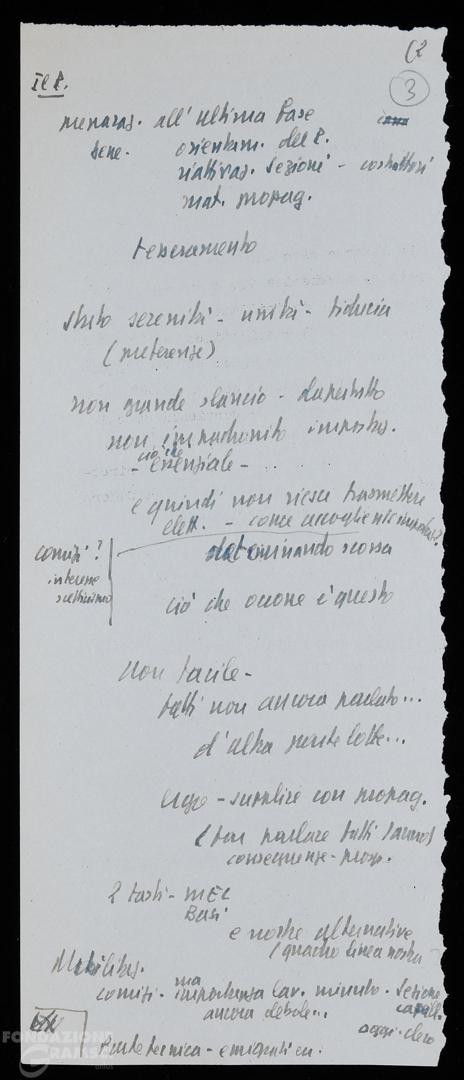 (2
Il P.
3
preparaz. all'ultima base
gene. orientam. del P.
riattivaz. sezioni - costruttori
mat. propag.
tesseramento
stato serenità - unità - fiducia
(preferenze)
non grande slancio - dapertutto
non impadronito impostaz.
ciò che
- essenziale -
e quindi non riesce trasmettere
elett. - come accoglie ns impostaz?
comizi?
interesse
scetticismo
determinando scossa
ciò che occorre è questo
non facile -
fatti non ancora parlato...
d'altra parte lotte...
Ugo - supplire con propag.
(ben parlare fatti
conseguenze - prosp.
2 fatti - MEC
Basi
e nostre alternative
(quadro linea nostra
Mobilitaz.
comizi. ma importanza lav. minuto. Sezione
ancora debole... capill.
oggi. clero
Parte tecnica - emigrati ecc.
FONDAZIONE
GRAMSCI